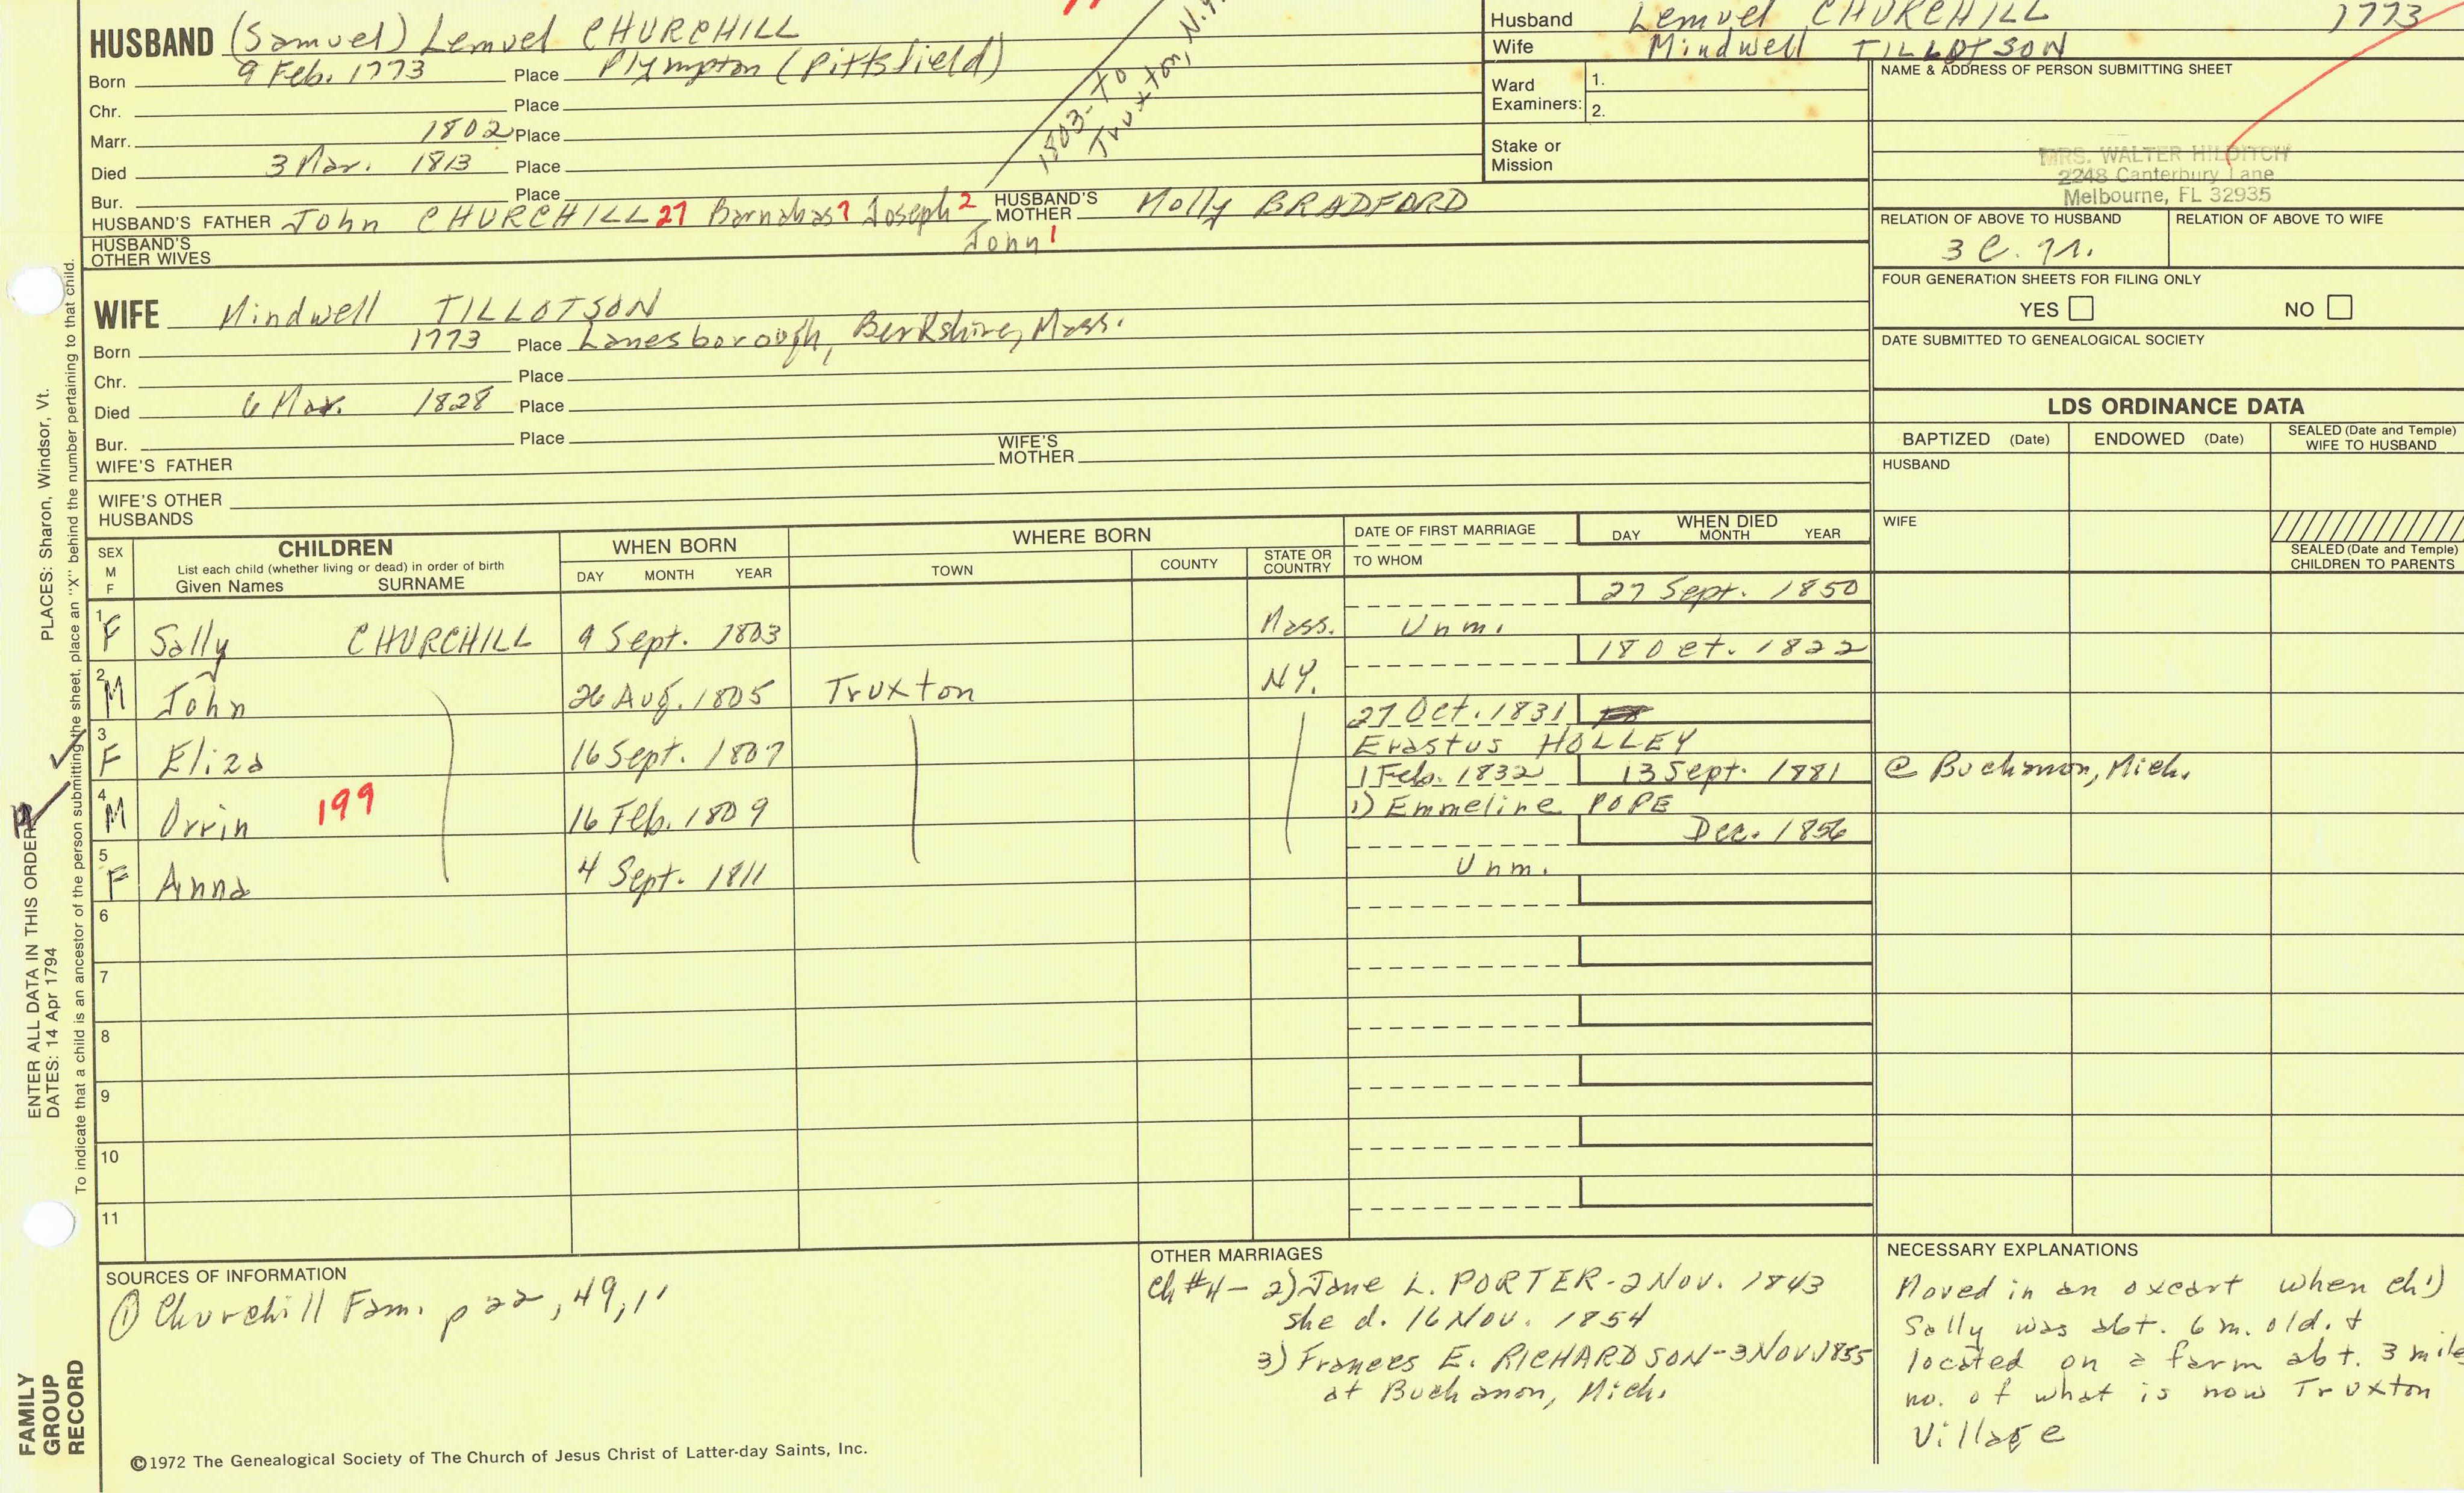 HUSBAND (Samuel) Lemuel CHURCHILL
Born 9 Feb. 1773 Place Plympton (Pittsfield)
Chr. Place
Marr. 1802 Place
Died 3 Mar. 1813 Place
Bur. Place
1803-To
Truxton, N.Y.
HUSBAND'S FATHER John CHURCHILL 27 Barnabas 7 Joseph 2 John 1 HUSBAND'S MOTHER Molly BRADFORD
HUSBAND'S OTHER WIVES
Husband Lemuel CHURCHILL 1773
Wife Mindwell TILLOTSON
Ward Examiners: 1.
2.
Stake or Mission
NAME & ADDRESS OF PERSON SUBMITTING SHEET
MRS. WALTER HILDITCH
2248 Canterbury Lane
Melbourne, FL 32935
RELATION OF ABOVE TO HUSBAND RELATION OF ABOVE TO WIFE
3 C. 7r.
FOUR GENERATION SHEETS FOR FILING ONLY
YES NO
DATE SUBMITTED TO GENEALOGICAL SOCIETY
WIFE Mindwell TILLOTSON
Born 1773 Place Lanesborough, Berkshire, Mass.
Chr. Place
Died 6 Mar. 1828 Place
Bur. Place
WIFE'S FATHER WIFE'S MOTHER
WIFE'S OTHER HUSBANDS
LDS ORDINANCE DATA
BAPTIZED (Date) ENDOWED (Date) SEALED (Date and Temple) WIFE TO HUSBAND
HUSBAND
WIFE
SEALED (Date and Temple) CHILDREN TO PARENTS
SEX M F
CHILDREN
List each child (whether living or dead) in order of birth
Given Names SURNAME
WHEN BORN
DAY MONTH YEAR
WHERE BORN
TOWN COUNTY STATE OR COUNTRY
DATE OF FIRST MARRIAGE
TO WHOM
WHEN DIED
DAY MONTH YEAR
1 F Sally CHURCHILL 9 Sept. 1803 Mass. Unm. 27 Sept. 1850
2 M John 26 Aug. 1805 Truxton NY. 18 Oct. 1822
3 F Eliza 16 Sept. 1807 27 Oct. 1831 Erastus HOLLEY
4 M Orrin 199 16 Feb. 1809 1 Feb. 1832 1) Emmeline POPE 13 Sept. 1881 @ Buchanon, Mich.
5 F Anna 4 Sept. 1811 Unm. Dec. 1856
6
7
8
9
10
11
SOURCES OF INFORMATION
① Churchill Fam. p 22, 49, 1
OTHER MARRIAGES
Ch #4 - 2) Jane L. PORTER - 2 Nov. 1843
she d. 16 Nov. 1854
3) Frances E. RICHARDSON - 3 Nov 1855
at Buchanon, Mich.
NECESSARY EXPLANATIONS
Moved in an oxcart when ch 1)
Sally was abt. 6 m. old. &
located on a farm abt. 3 mile
no. of what is now Truxton
Village
©1972 The Genealogical Society of The Church of Jesus Christ of Latter-day Saints, Inc.
FAMILY
GROUP
RECORD
ENTER ALL DATA IN THIS ORDER:
DATES: 14 Apr 1794
PLACES: Sharon, Windsor, Vt.
To indicate that a child is an ancestor of the person submitting the sheet, place an "X" behind the number pertaining to that child.